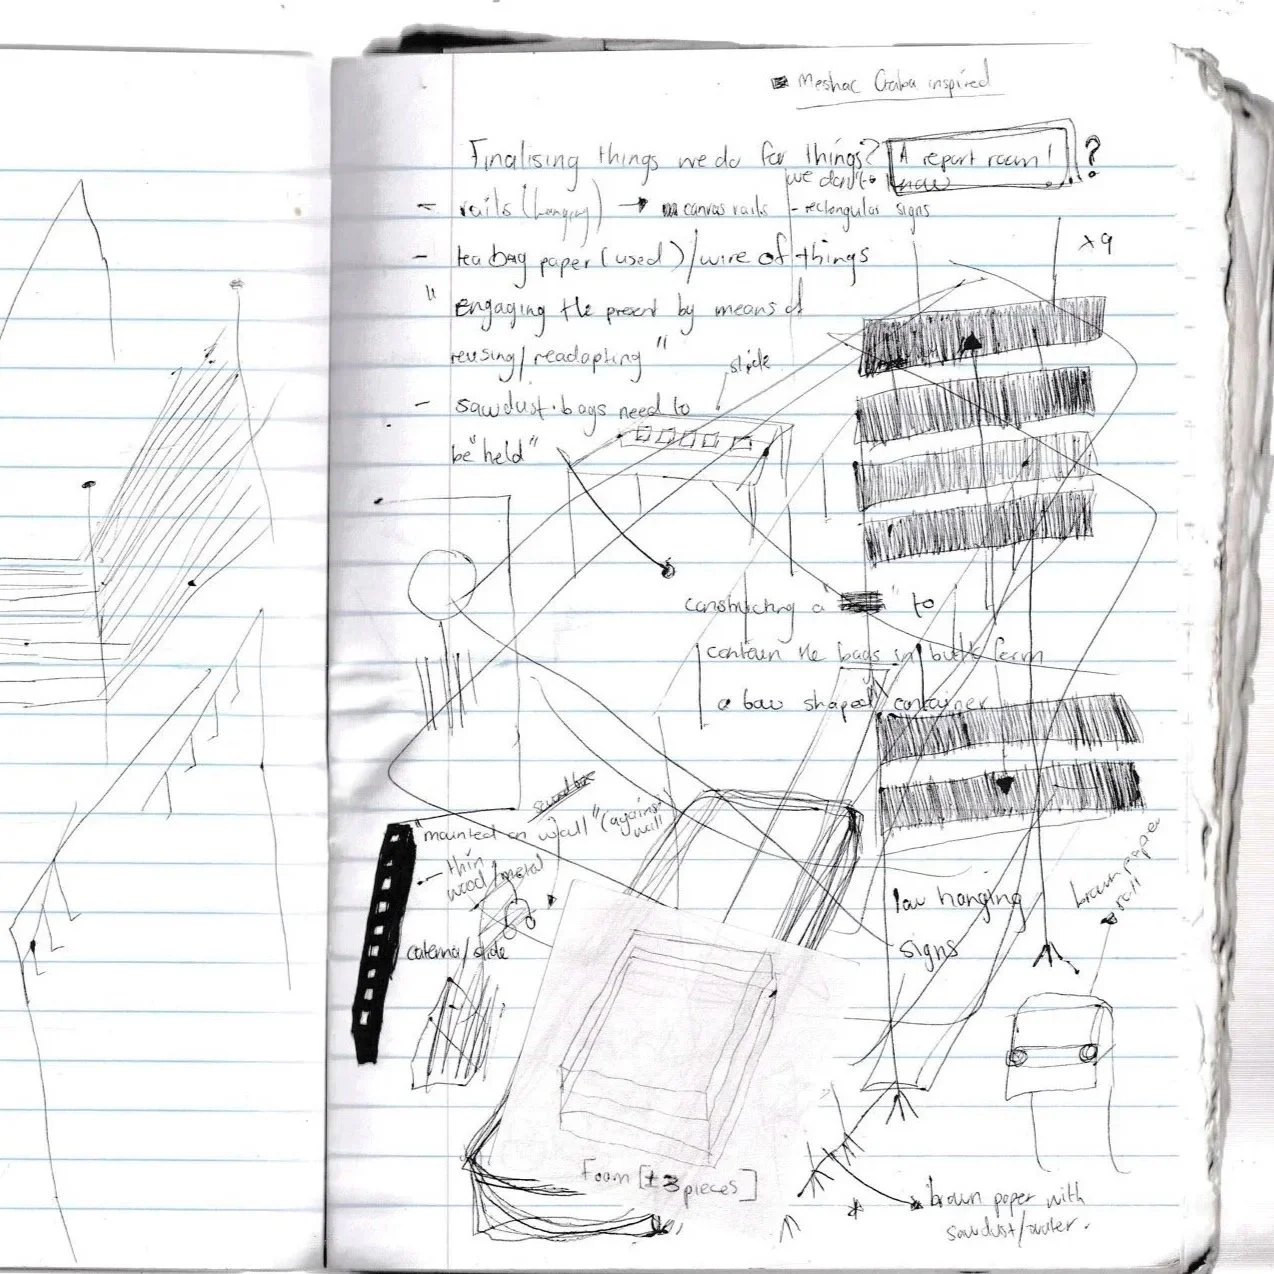 Meshac Gaba inspired
Finalising things we do for things? A report room! ?
we don't know
- rails (hanging) → canvas rails - rectangular signs
- tea bag paper (used) / wire of things
x9
" Engaging the present by means of
reusing/readapting "
slide
- sawdust bags need to
be "held"
constructing a " " to
contain the bags in bulk form
a bow shaped container
"mounted on wall" (against wall
- thin
wood/metal
brown paper
roll
low hanging
signs
/slide
Foam [± 3 pieces]
brown paper with
sawdust/water.